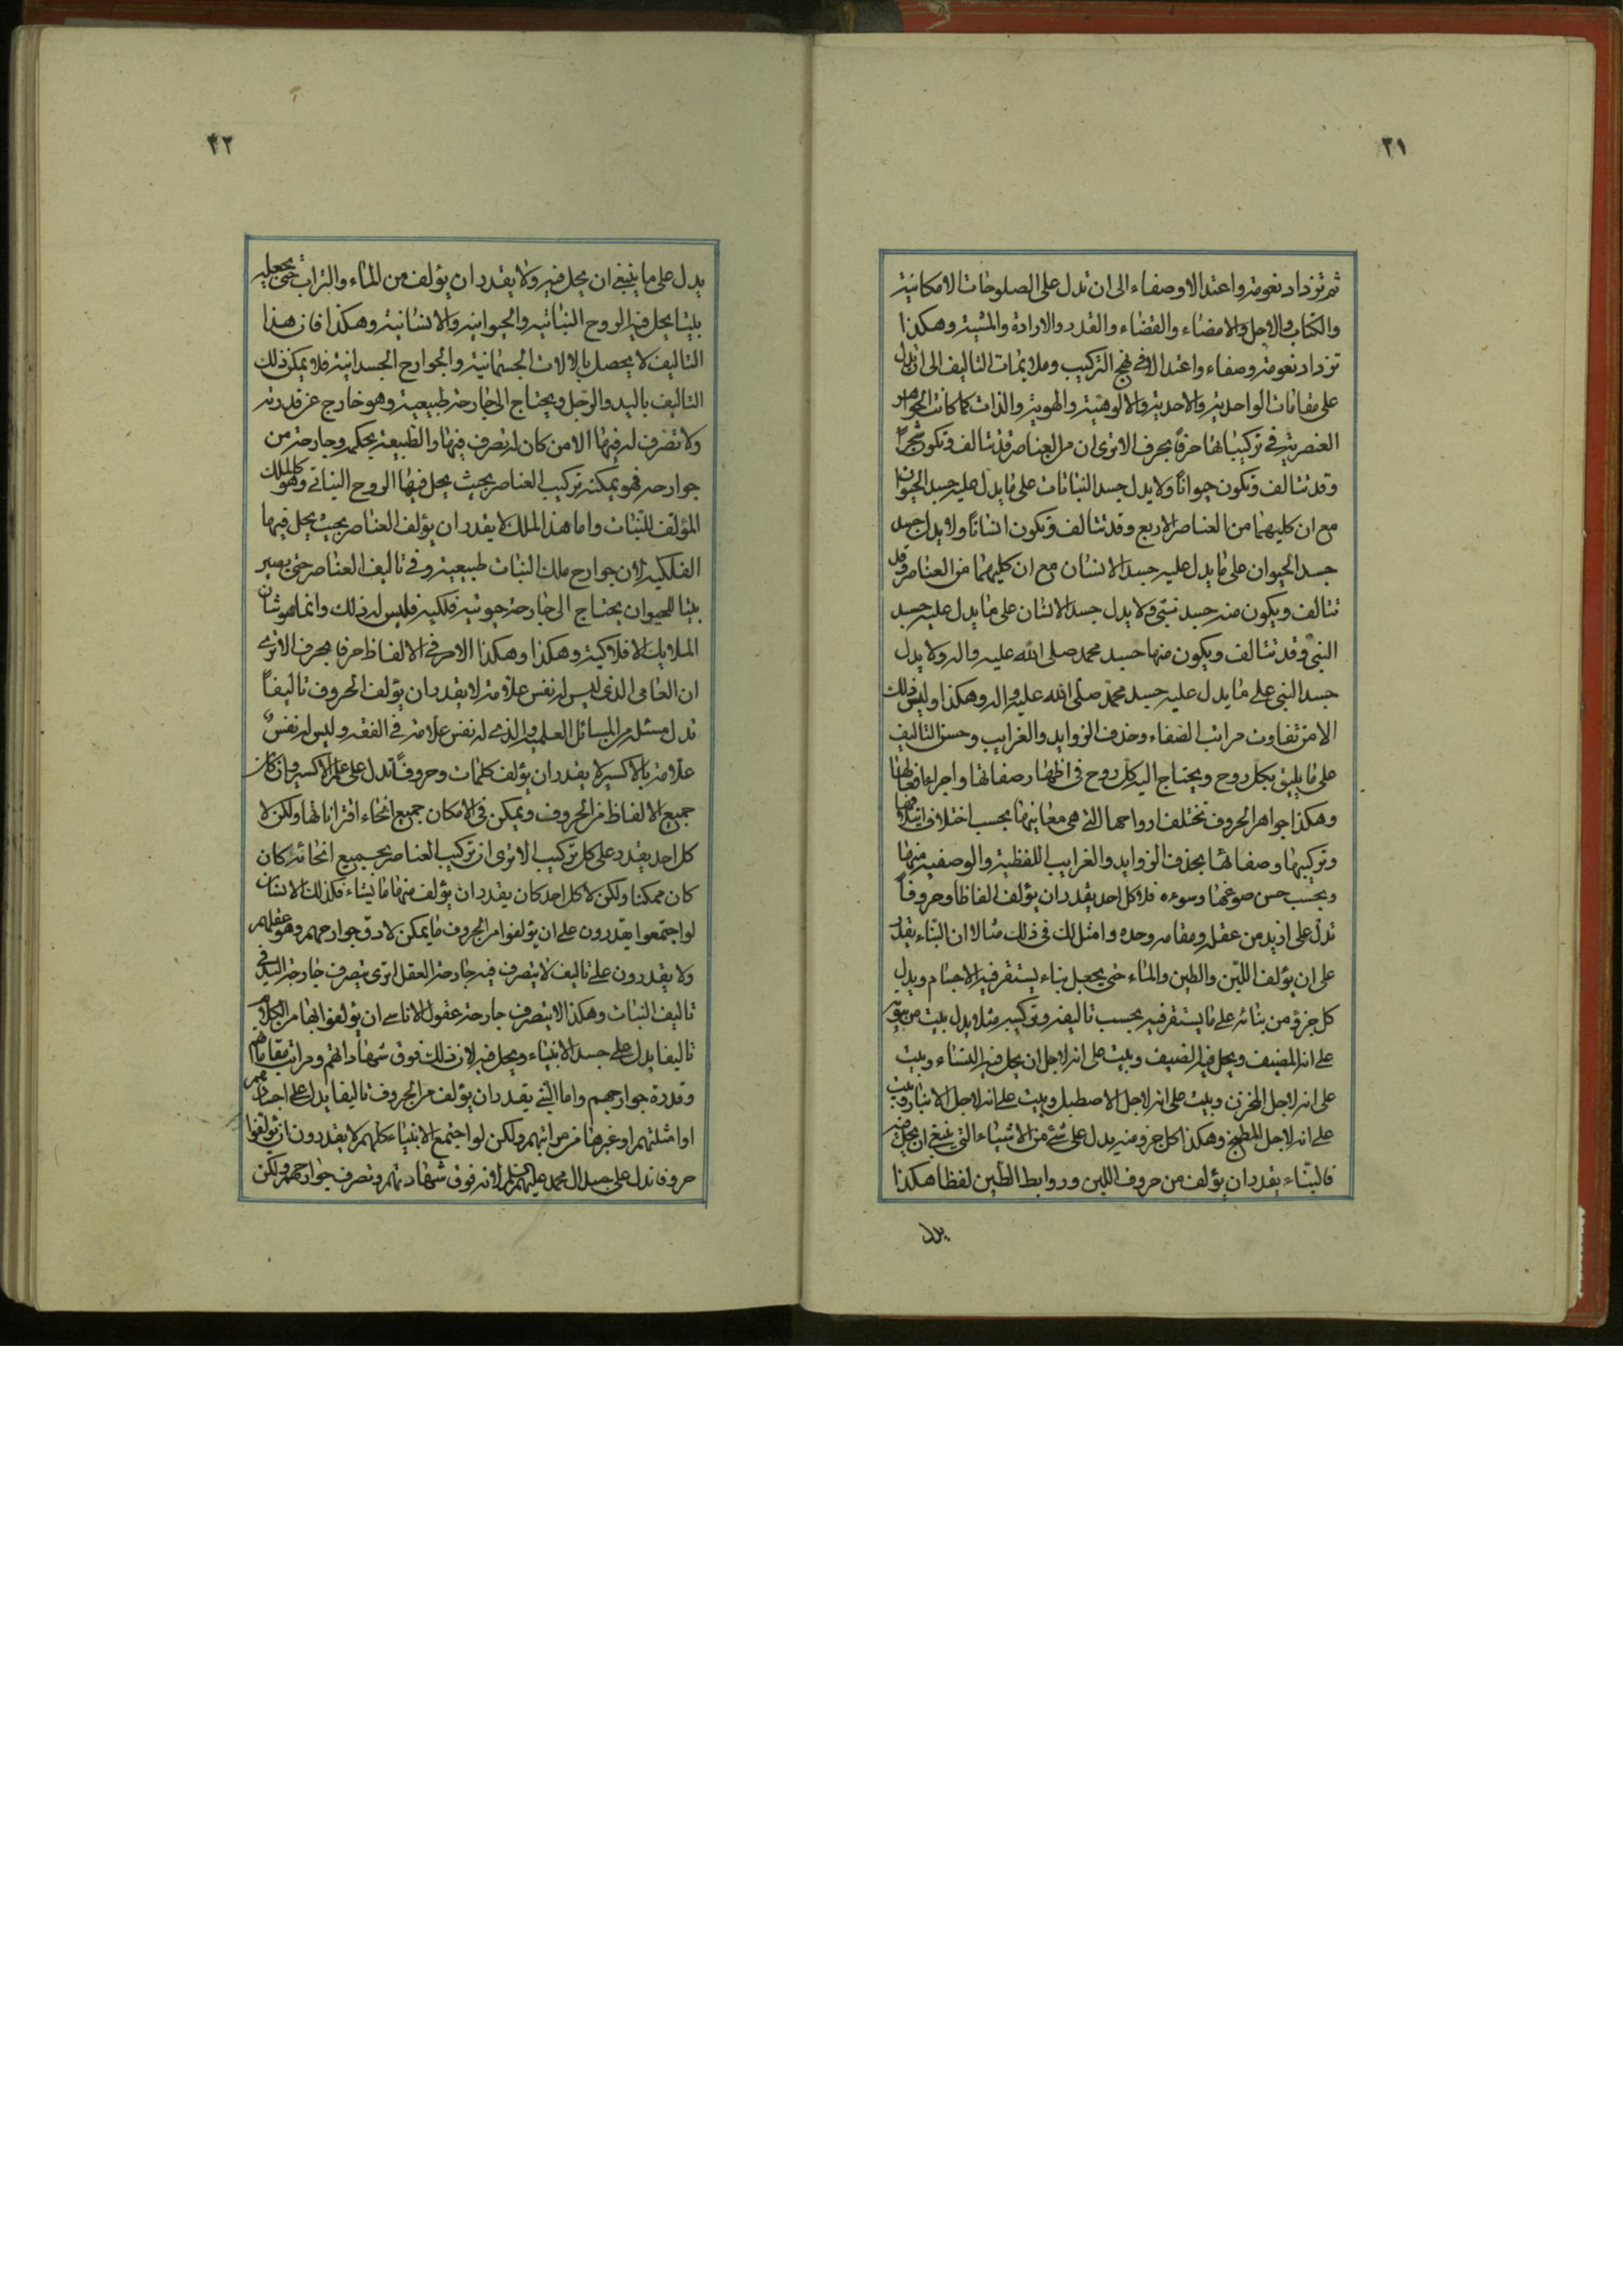 ٣١
ثم تزداد نعومة واعتدالا وصفاء الى ان تدل على الصلوحات الامكانية
والكتاب والاجل والامضاء والقضاء والقدر والارادة والمشية وهكذا
تزداد نعومة وصفاء واعتدالا في نهج التركيب وملايمات التاليف الى ان تدل
على مقامات الواحدية والاحدية والالوهية والهوية والذات كما كانت الجواهر
العنصرية في تركيباتها حرفا بحرف الا ترى ان من العناصر قد تتالف وتكون شجراً
وقد تتالف وتكون حيواناً ولا يدل جسد النباتات على ما يدل عليه جسد الحيوان
مع ان كليهما من العناصر الاربع وقد تتالف وتكون انساناً ولا يدل جسد
جسد الحيوان على ما يدل عليه جسد الانسان مع ان كليهما من العناصر وقد
تتالف ويكون منه جسد نبي ولا يدل جسد الانسان على ما يدل عليه جسد
النبي وقد تتالف ويكون منها جسد محمد صلى الله عليه واله ولا يدل
جسد النبي على ما يدل عليه جسد محمد صلى الله عليه واله وهكذا وليس ذلك
الا من تفاوت مراتب الصفاء وحذف الزوايد والغرايب وحسن التاليف
على ما يليق بكل روح ويحتاج اليه كل روح في اظهار صفاتها واجراء افعالها
وهكذا جواهر الحروف تختلف ارواحها التي هي معانيها بحسب اختلاف ايتلافها
وتركيبها وصفائها بحذف الزوايد والغرايب اللفظية والوصفية منها
وبحسب حسن صوغها وسوءه فلا كل احد يقدر ان يؤلف الفاظا وحروفاً
تدل على ازيد من عقله ومقامه وحده وامثل لك في ذلك مثالا ان البناء يقدر
على ان يؤلف اللبن والطين والماء حتى يجعل بناء يستقر فيه الاجسام ويدل
كل جزؤ من بنائه على ما يستقر فيه بحسب تاليفه وتركيبه مثلا يدل بيت من بيوته
على انه المضيف ويحل فيه الضيف وبيت على انه لاجل ان يحل فيه النساء وبيت
على انه لاجل المخزن وبيت على انه لاجل الاصطبل وبيت على انه لاجل الانبار وبيت
على انه لاجل المطبخ وهكذا كل جزو منه يدل على شئ من الاشياء التي ينبغي ان يحل فيه
فالبناء يقدر ان يؤلف من حروف اللبن وروابط الطين لفظا هكذا
يدل
٣٢
يدل على ما ينبغي ان يحل فيه ولا يقدر ان يؤلف من الماء والتراب حتى يجعله
بيتا يحل فيه الروح النباتية والحيوانية والانسانية وهكذا فان هذا
التاليف لا يحصل بالالات الجسمانية والجوارح الجسدانية فلا يمكن ذلك
التاليف باليد والرجل ويحتاج الى جارحة طبيعية وهو خارج عن قدرته
ولا تصرف له فيها الا من كان له تصرف فيها والطبيعة بحكمه وجارحة من
جوارحه فهو يمكنه تركيب العناصر بحيث يحل فيها الروح النباتي وهو كالملك
المؤلف للنبات واما هذا الملك لا يقدر ان يؤلف العناصر بحيث يحل فيها
الفلكية لان جوارح ملك النبات طبيعية وفي تاليف العناصر حتى يصير
بيتا للحيوان يحتاج الى جارحة حيوتية فلكية فليس له ذلك وانما هو شان
الملايكة الافلاكية وهكذا وهكذا الامر في الالفاظ حرفا بحرف الا ترى
ان العامى الذى ليس له نفس علامة لا يقدر ان يؤلف الحروف تاليفاً
تدل مسئلة من المسائل العلمية والذى له نفس علامة في الفقه وليس له نفس
علامة بالاكسير لا يقدر ان يؤلف كلمات وحروفاً تدل على علم الاكسير وان كان
جميع الالفاظ من الحروف ويمكن في الامكان جميع انحاء اقتراناتها ولكن لا
كل احد يقدر على كل تركيب الا ترى ان تركيب العناصر بجميع انحائه كان
كان ممكنا ولكن لا كل احد كان يقدر ان يؤلف منها ما يشاء فكذلك الانسان
لو اجتمعوا يقدرون على ان يؤلفوا من الحروف ما يمكن لادق جوارحهم وهو عقلهم
ولا يقدرون على تاليف لا يتصرف فيه جارحة العقل اترى يتصرف جارحة اليد في
تاليف النبات وهكذا لا يتصرف جارحة عقول الاناسى ان يؤلفوا بها من الكلام
تاليفا يدل على جسد الانبياء ويحل فيه لان ذلك فوق شهاداتهم ومراتب مقاماتهم
وقدرة جوارحهم واما النبي يقدر ان يؤلف من الحروف تاليفا يدل على اجسادهم
او امثلتهم او غيرها من مراتبهم ولكن لو اجتمع الانبياء كلهم لا يقدرون ان يؤلفوا
حروفا تدل على جسد ال محمد عليهم السلم لانه فوق شهادتهم وتصرف جوارحهم ولكن